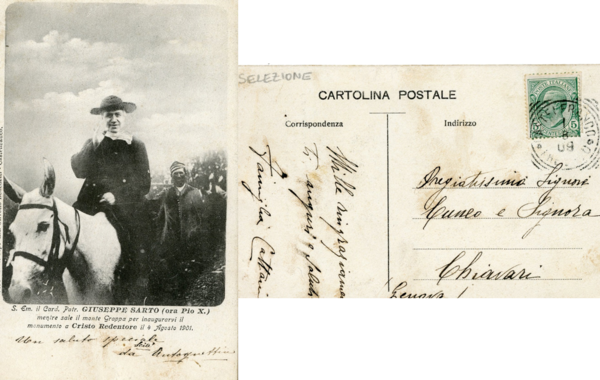 S. Em. il Card. Patr. GIUSEPPE SARTO (ora Pio X.)
mentre sale il monte Grappa per inaugurarvi il
monumento a Cristo Redentore il 4 Agosto 1901.
Un saluto speciale
da Antognettina
SELEZIONE
CARTOLINA POSTALE
Corrispondenza
Indirizzo
Mille ringraziamen
auguri e saluti
Famiglia Cattani
Pregiatissimi Signori
Cuneo e Signora
Chiavari
Genova